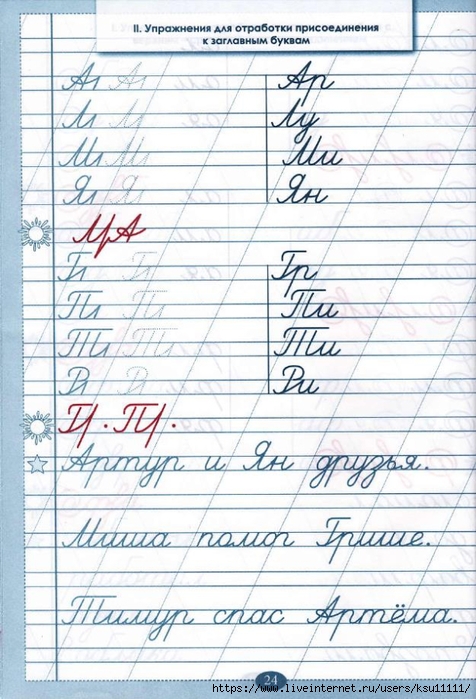 II. Упражнения для отработки присоединения
к заглавным буквам
Аı Аı Ар
Лı Лı Лу
Мı Мı Ми
Яı Яı Ян
Гı Гı Гр
Пı Пı Пи
Тı Тı Ти
Рı Рı Ри
Артур и Ян друзья.
Миша помог Грише.
Тимур спас Артёма.
24
https://www.liveinternet.ru/users/ksu11111/